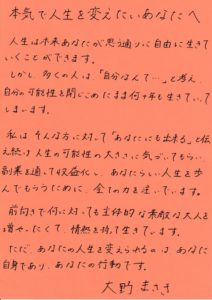 本気で人生を変えたいあなたへ
人生は本来あなたが思う通りに自由に生きて
いくことができます。
しかし、多くの人は、「自分なんて…」と考え、
自分の可能性を閉じこめたまま何十年も生きていて
しまいます。
私は そんな方に対して「あなたにも出来る」と伝
え続け 人生の可能性の大きさに気づいてもらい、
副業を通して収益化し、あなたらしい人生を歩
んでもらうために、全ての力を注いでいます。
前向きで何に対しても主体的な素敵な大人を
増やしたくて、情熱を持て生きています。
ただ、あなたの人生を変えられるのは、あなた
自身であり、あなたの行動です。
大野 まさき